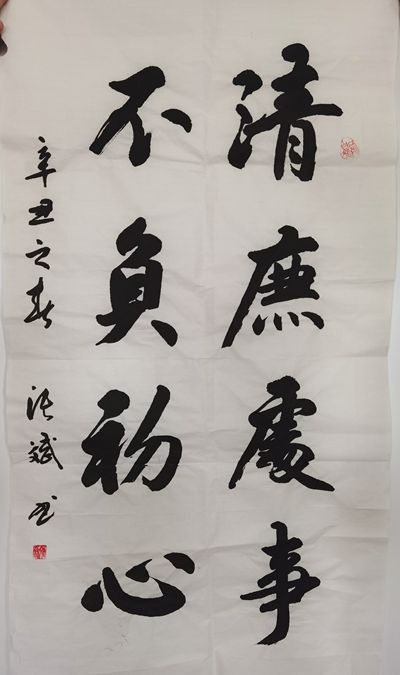 清廉處事
不負初心
辛丑之春 張斌書